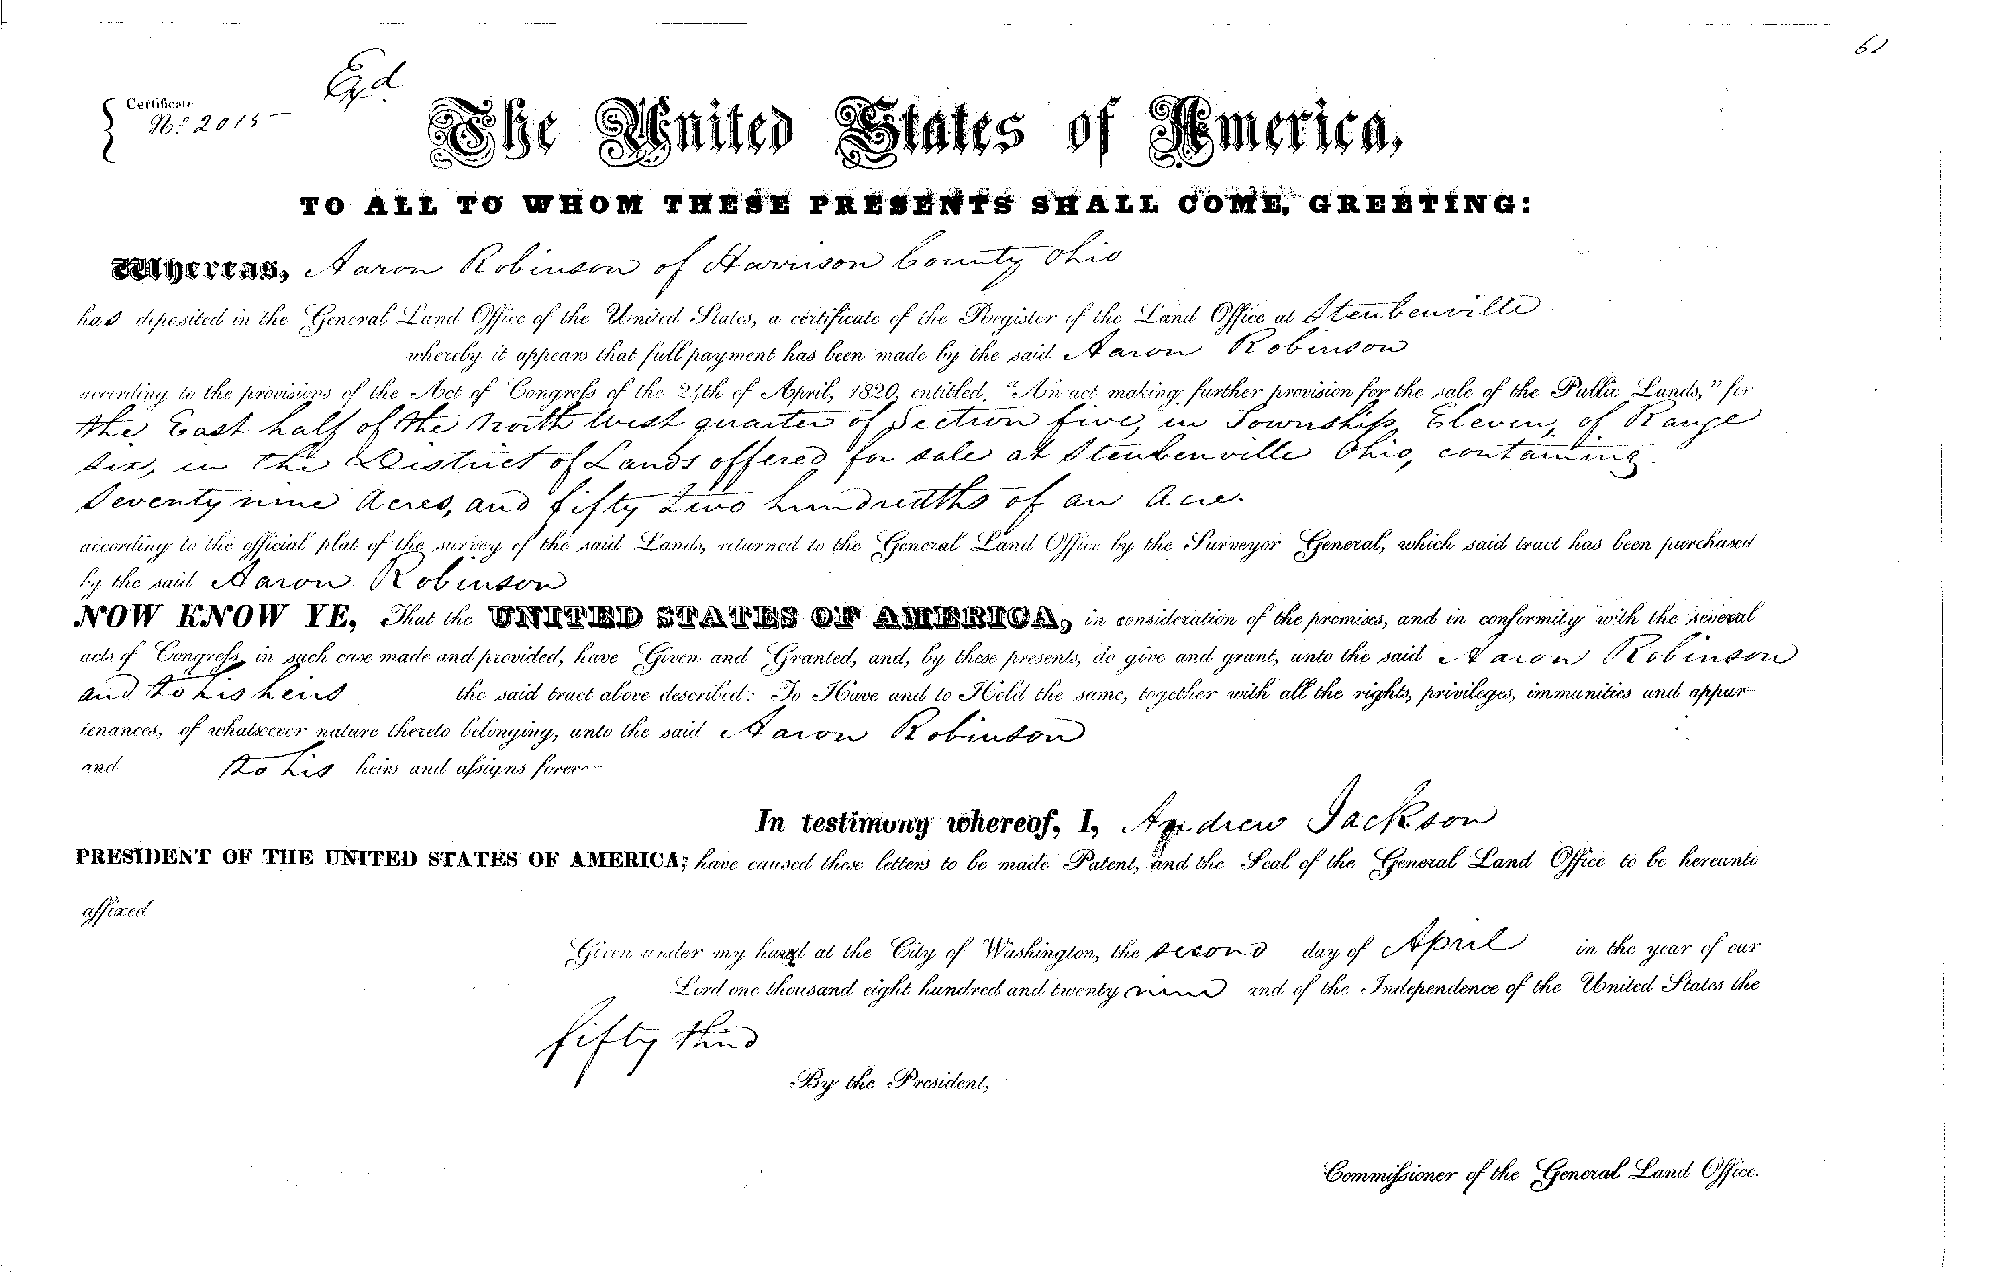 62
Exd.
Certificate
No. 2015
The United States of America,
TO ALL TO WHOM THESE PRESENTS SHALL COME, GREETING:
Whereas, Aaron Robinson of Harrison County Ohio
has deposited in the General Land Office of the United States, a certificate of the Register of the Land Office at Steubenville
whereby it appears that full payment has been made by the said Aaron Robinson
according to the provisions of the Act of Congress of the 24th of April, 1820, entitled, "An act making further provision for the sale of the Public Lands," for
the East half of the North West quarter of Section five, in Township Eleven, of Range
six, in the District of Lands offered for sale at Steubenville Ohio, containing
Seventy nine Acres, and fifty two hundredths of an Acre.
according to the official plat of the survey of the said Lands, returned to the General Land Office by the Surveyor General, which said tract has been purchased
by the said Aaron Robinson
NOW KNOW YE, That the UNITED STATES OF AMERICA, in consideration of the promises, and in conformity with the several
acts of Congress, in such case made and provided, have Given and Granted, and, by these presents, do give and grant, unto the said Aaron Robinson
and to his heirs the said tract above described: To Have and to Hold the same, together with all the rights, privileges, immunities and appur-
tenances, of whatsoever nature thereto belonging, unto the said Aaron Robinson
and to his heirs and assigns forever
In testimony whereof, I, Andrew Jackson
PRESIDENT OF THE UNITED STATES OF AMERICA; have caused these letters to be made Patent, and the Seal of the General Land Office to be hereunto
affixed
Given under my hand at the City of Washington, the second day of April in the year of our
Lord one thousand eight hundred and twenty nine and of the Independence of the United States the
fifty third
By the President,
Commissioner of the General Land Office.